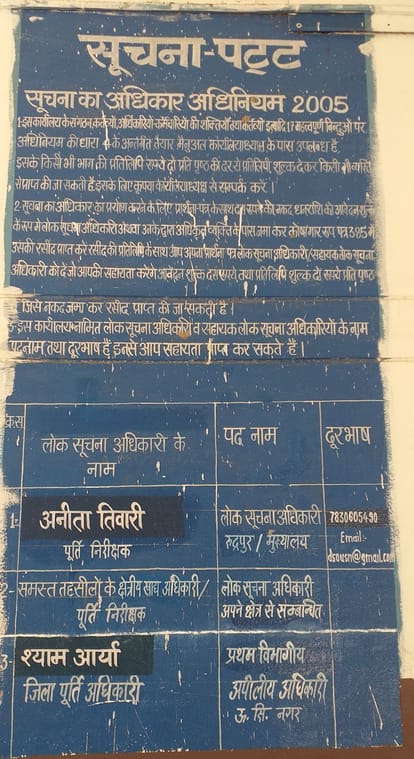 सूचना-पट्ट
सूचना का अधिकार अधिनियम 2005
1-इस कार्यालय के संगठन, कर्तव्यों, अधिकारियों कर्मचारियों की शक्तियों तथा कर्तव्यों इत्यादि 17 महत्वपूर्ण बिन्दुओं पर
अधिनियम की धारा 4 के अन्तर्गत तैयार मैनुअल कार्यालयाध्यक्ष के पास उपलब्ध है
इसके किसी भी भाग की प्रतिलिपि रुपये दो प्रति पृष्ठ की दर से प्रतिलिपि शुल्क देकर किसी भी
से प्राप्त की जा सकती है, इसके लिए कृपया कार्यालयाध्यक्ष से सम्पर्क करें।
2-सूचना का अधिकार का प्रयोग करने के लिए प्रार्थना पत्र के साथ दस रुपये की नकद धनराशि की आवेदन शुल्क
के रूप में लोक सूचना अधिकारी अथवा उनके द्वारा अधिकृत व्यक्ति के पास जमा कर कोषागार रूप पत्र 385 में
उसकी रसीद प्राप्त करें रसीद की प्रतिलिपि के साथ आप अपना प्रार्थना पत्र लोक सूचना अधिकारी/सहायक लोक सूचना
अधिकारी को दें जो आपकी सहायता करेंगे आवेदन शुल्क दस रुपये तथा प्रतिलिपि शुल्क दो रुपये प्रति पृष्ठ
जिसे नकद जमा कर रसीद प्राप्त की जा सकती है।
3-इस कार्यालय नामित लोक सूचना अधिकारी व सहायक लोक सूचना अधिकारियों के नाम
पदनाम तथा दूरभाष हैं इनसे आप सहायता प्राप्त कर सकते हैं।
क्र.सं. लोक सूचना अधिकारी के नाम पद नाम दूरभाष
1- अनीता तिवारी लोक सूचना अधिकारी 7830605490
पूर्ति निरीक्षक रुद्रपुर/मुख्यालय Email:-
dsousn@gmail.com
2- समस्त तहसीलों के क्षेत्रीय खाद्य अधिकारी/ लोक सूचना अधिकारी
पूर्ति निरीक्षक अपने क्षेत्र से सम्बन्धित
3 श्याम आर्या प्रथम विभागीय
जिला पूर्ति अधिकारी अपीलीय अधिकारी
ऊ. सि. नगर